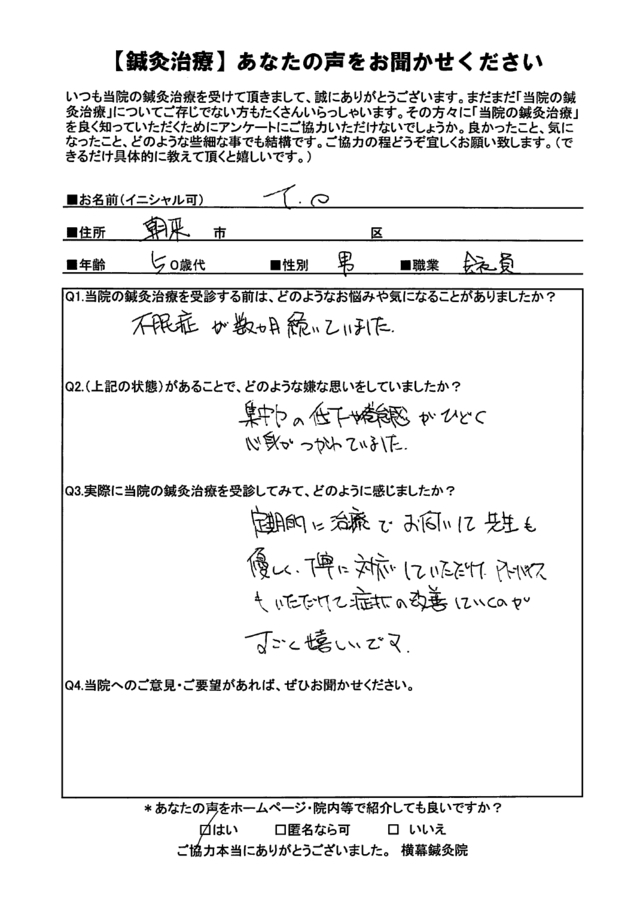 【鍼灸治療】あなたの声をお聞かせください
いつも当院の鍼灸治療を受けて頂きまして、誠にありがとうございます。まだまだ「当院の鍼
灸治療」についてご存じでない方もたくさんいらっしゃいます。その方々に「当院の鍼灸治療」
を良く知っていただくためにアンケートにご協力いただけないでしょうか。良かったこと、気に
なったこと、どのような些細な事でも結構です。ご協力の程どうぞ宜しくお願い致します。(で
きるだけ具体的に教えて頂くと嬉しいです。)
■お名前(イニシャル可) T.O
■住所 朝来 市 区
■年齢 50歳代 ■性別 男 ■職業 会社員
Q1.当院の鍼灸治療を受診する前は、どのようなお悩みや気になることがありましたか?
不眠症が数ヶ月続いていました.
Q2.(上記の状態)があることで、どのような嫌な思いをしていましたか?
集中力の低下や倦怠感がひどく
心身がつかれていました.
Q3.実際に当院の鍼灸治療を受診してみて、どのように感じましたか?
定期的に治療でお伺いして先生も
優しく、丁寧に対応していただけ、アドバイス
もいただけて症状の改善していくのが
すごく嬉しいです.
Q4.当院へのご意見・ご要望があれば、ぜひお聞かせください。
*あなたの声をホームページ・院内等で紹介しても良いですか?
□はい □匿名なら可 □ いいえ
ご協力本当にありがとうございました。 横幕鍼灸院